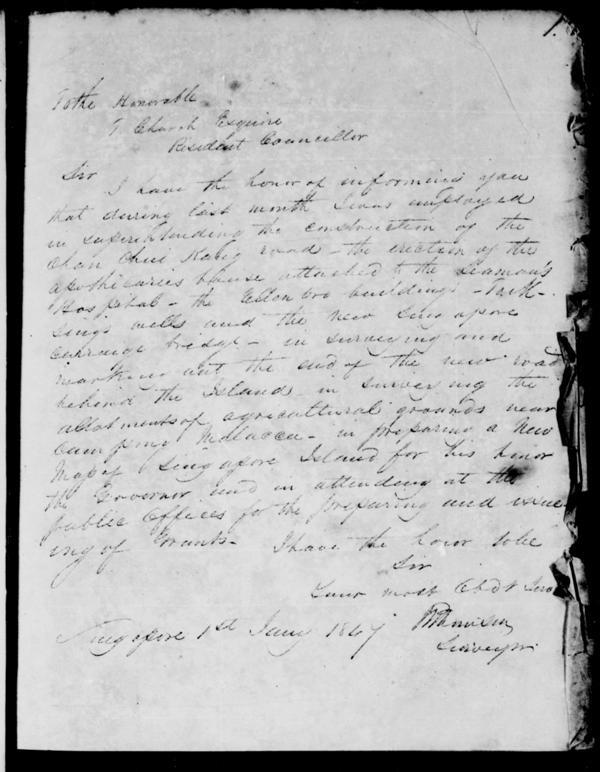 To the Honorable
T. Church Esquire
Resident Councillor
Sir
I have the honor of informing you
that during last month I was employed
in superintending the construction of the
Chan Chui Kang road - the erection of the
apothecaries house attached to the Seaman's
Hospital - the buildings -
wells and the new Singapore
carriage bridge - in surveying and
marking out the end of the new road
behind the Island - in surveying the
allotments of agricultural grounds near
Campong Malacca - in preparing a New
Map of Singapore Island for his honor
the Governor and in attending at the
public Offices for the preparing and issue
ing of Grants - I have the honor to be
Sir
Your most Obdt Serv
Singapore 1st 1847
Surveyor